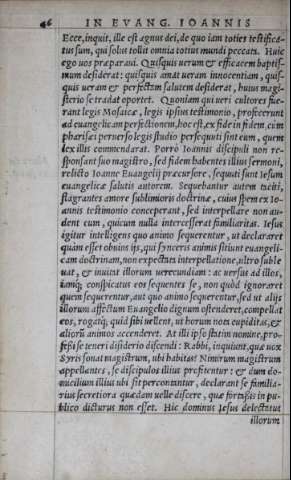 46 IN EVANG. IOANNIS
Ecce, inquit, ille est agnus dei, de quo iam toties testificatus sum, qui solus tollit omnia totius mundi peccata. Huic
ego uos præparaui. Quisquis uerum & efficacem baptis-
mum desiderat: quisquis amat ueram innocentiam, quis-
quis ueram & perfectam salutem desiderat, huius magi-
sterio se tradat oportet. Quoniam qui ueri cultores fue-
rant legis Mosaicæ, legis ipsius testimonio, profecerunt
ad euangelicam perfectionem, hoc est, ex fide in fidem, cum
pharisæi peruerso legis studio persequuti sint eum, quem
lex illis commendarat. Porrò Ioannis discipuli non re-
sponsant suo magistro, sed fidem habentes illius sermoni,
relicto Ioanne Euangelij præcursore, sequuti sunt Iesum
euangelicæ salutis autorem. Sequebantur autem taciti,
flagrantes amore sublimioris doctrinæ, cuius spem ex Io-
annis testimonio conceperant, sed interpellare non au-
dent eum, quicum nulla intercesserat familiaritas. Iesus
igitur intelligens quo animo sequerentur, ut declararet
quàm esset obuius ijs, qui synceris animis sitiunt euangeli-
cam doctrinam, non expectata interpellatione, ultro suble
uat, & inuitat illorum uerecundiam: ac uersus ad illos,
iamq; conspicatus eos sequentes se, non quòd ignoraret
quem sequerentur, aut quo animo sequerentur, sed ut alijs
illorum affectum Euangelio dignum ostenderet, compellat
eos, rogatq; quid sibi uellent, ut horum nota cupiditas, &
aliorum animos accenderet. At illi ipso statim nomine, pro-
fessi se teneri disidério discendi: Rabbi, inquiunt, quæ uox
Syris sonat magistrum, ubi habitas? Nimirum magistrum
appellantes, se discipulos illius profitentur: & dum do-
micilium illius ubi sit percontantur, declarant se familia-
rius secretiora quædam uelle discere, quæ fortassis in pu-
blico dicturus non esset. Hic dominus Iesus delectatus
illorum